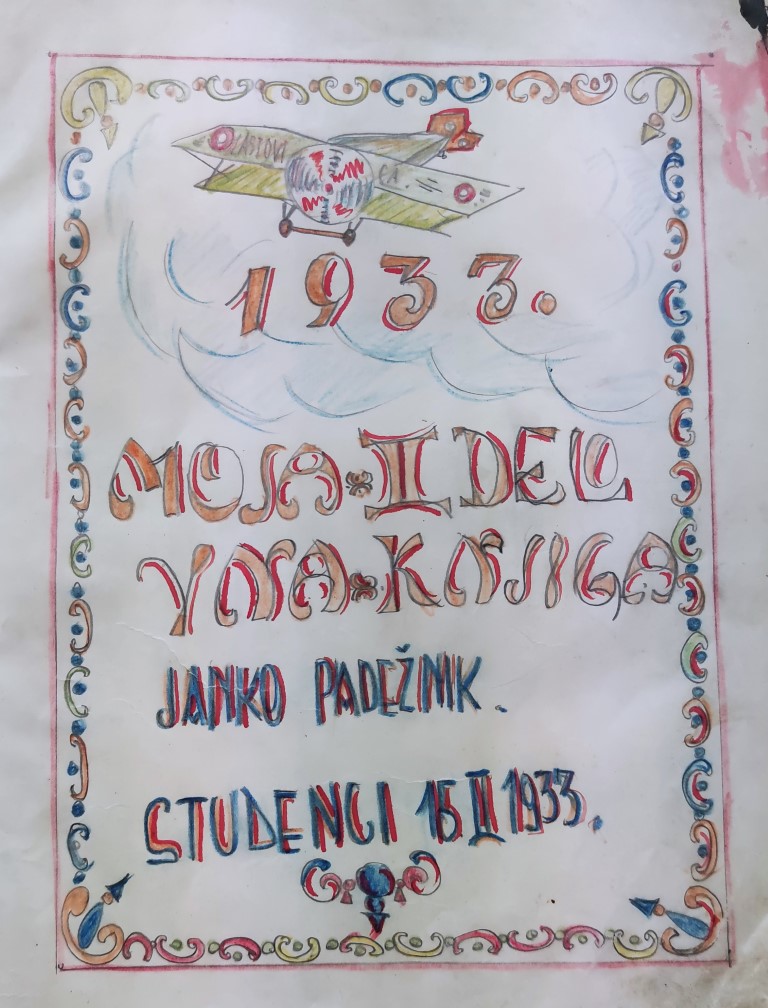 1933.
MOJA II DELO
VNA KNJIGA
JANKO PADEŽNIK.
STUDENCI 15 II 1933.